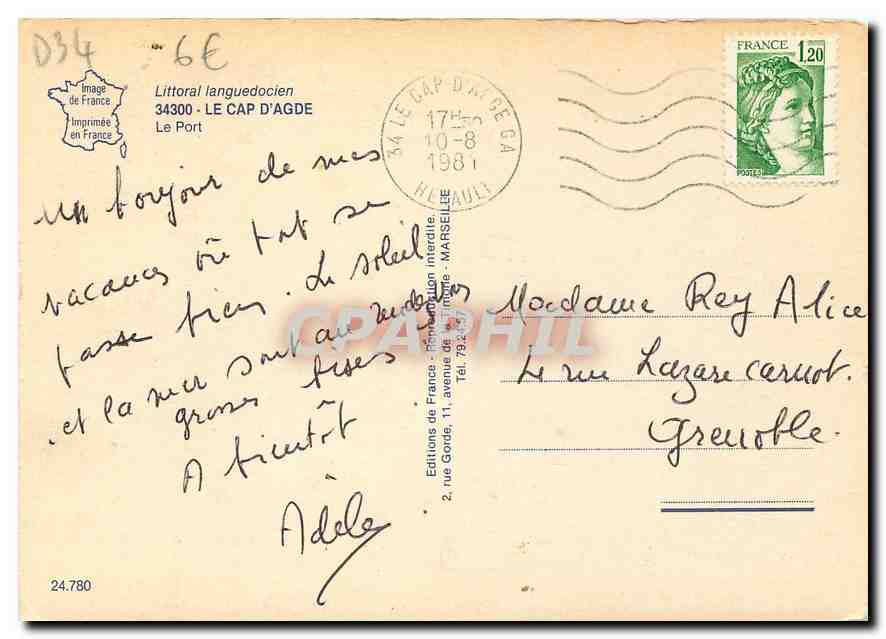 D34 6€
Image
de France
Imprimée
en France
Littoral languedocien
34300 - LE CAP D'AGDE
Le Port
34 LE CAP D'AGDE GA
17H30
10-8
1981
HERAULT
FRANCE
1,20
POSTES
un bonjour de mes
vacances où tout se
passe bien. Le soleil
et la mer sont au rendez vos
grosses bises
A bientôt
Adèle
Editions de France - Reproduction interdite.
2, rue Gorde, 11, avenue de la Timone - MARSEILLE
Tél. 79.24.57
CPAPHIL
Madame Rey Alice
rue Lazare Carnot.
Grenoble.
24.780